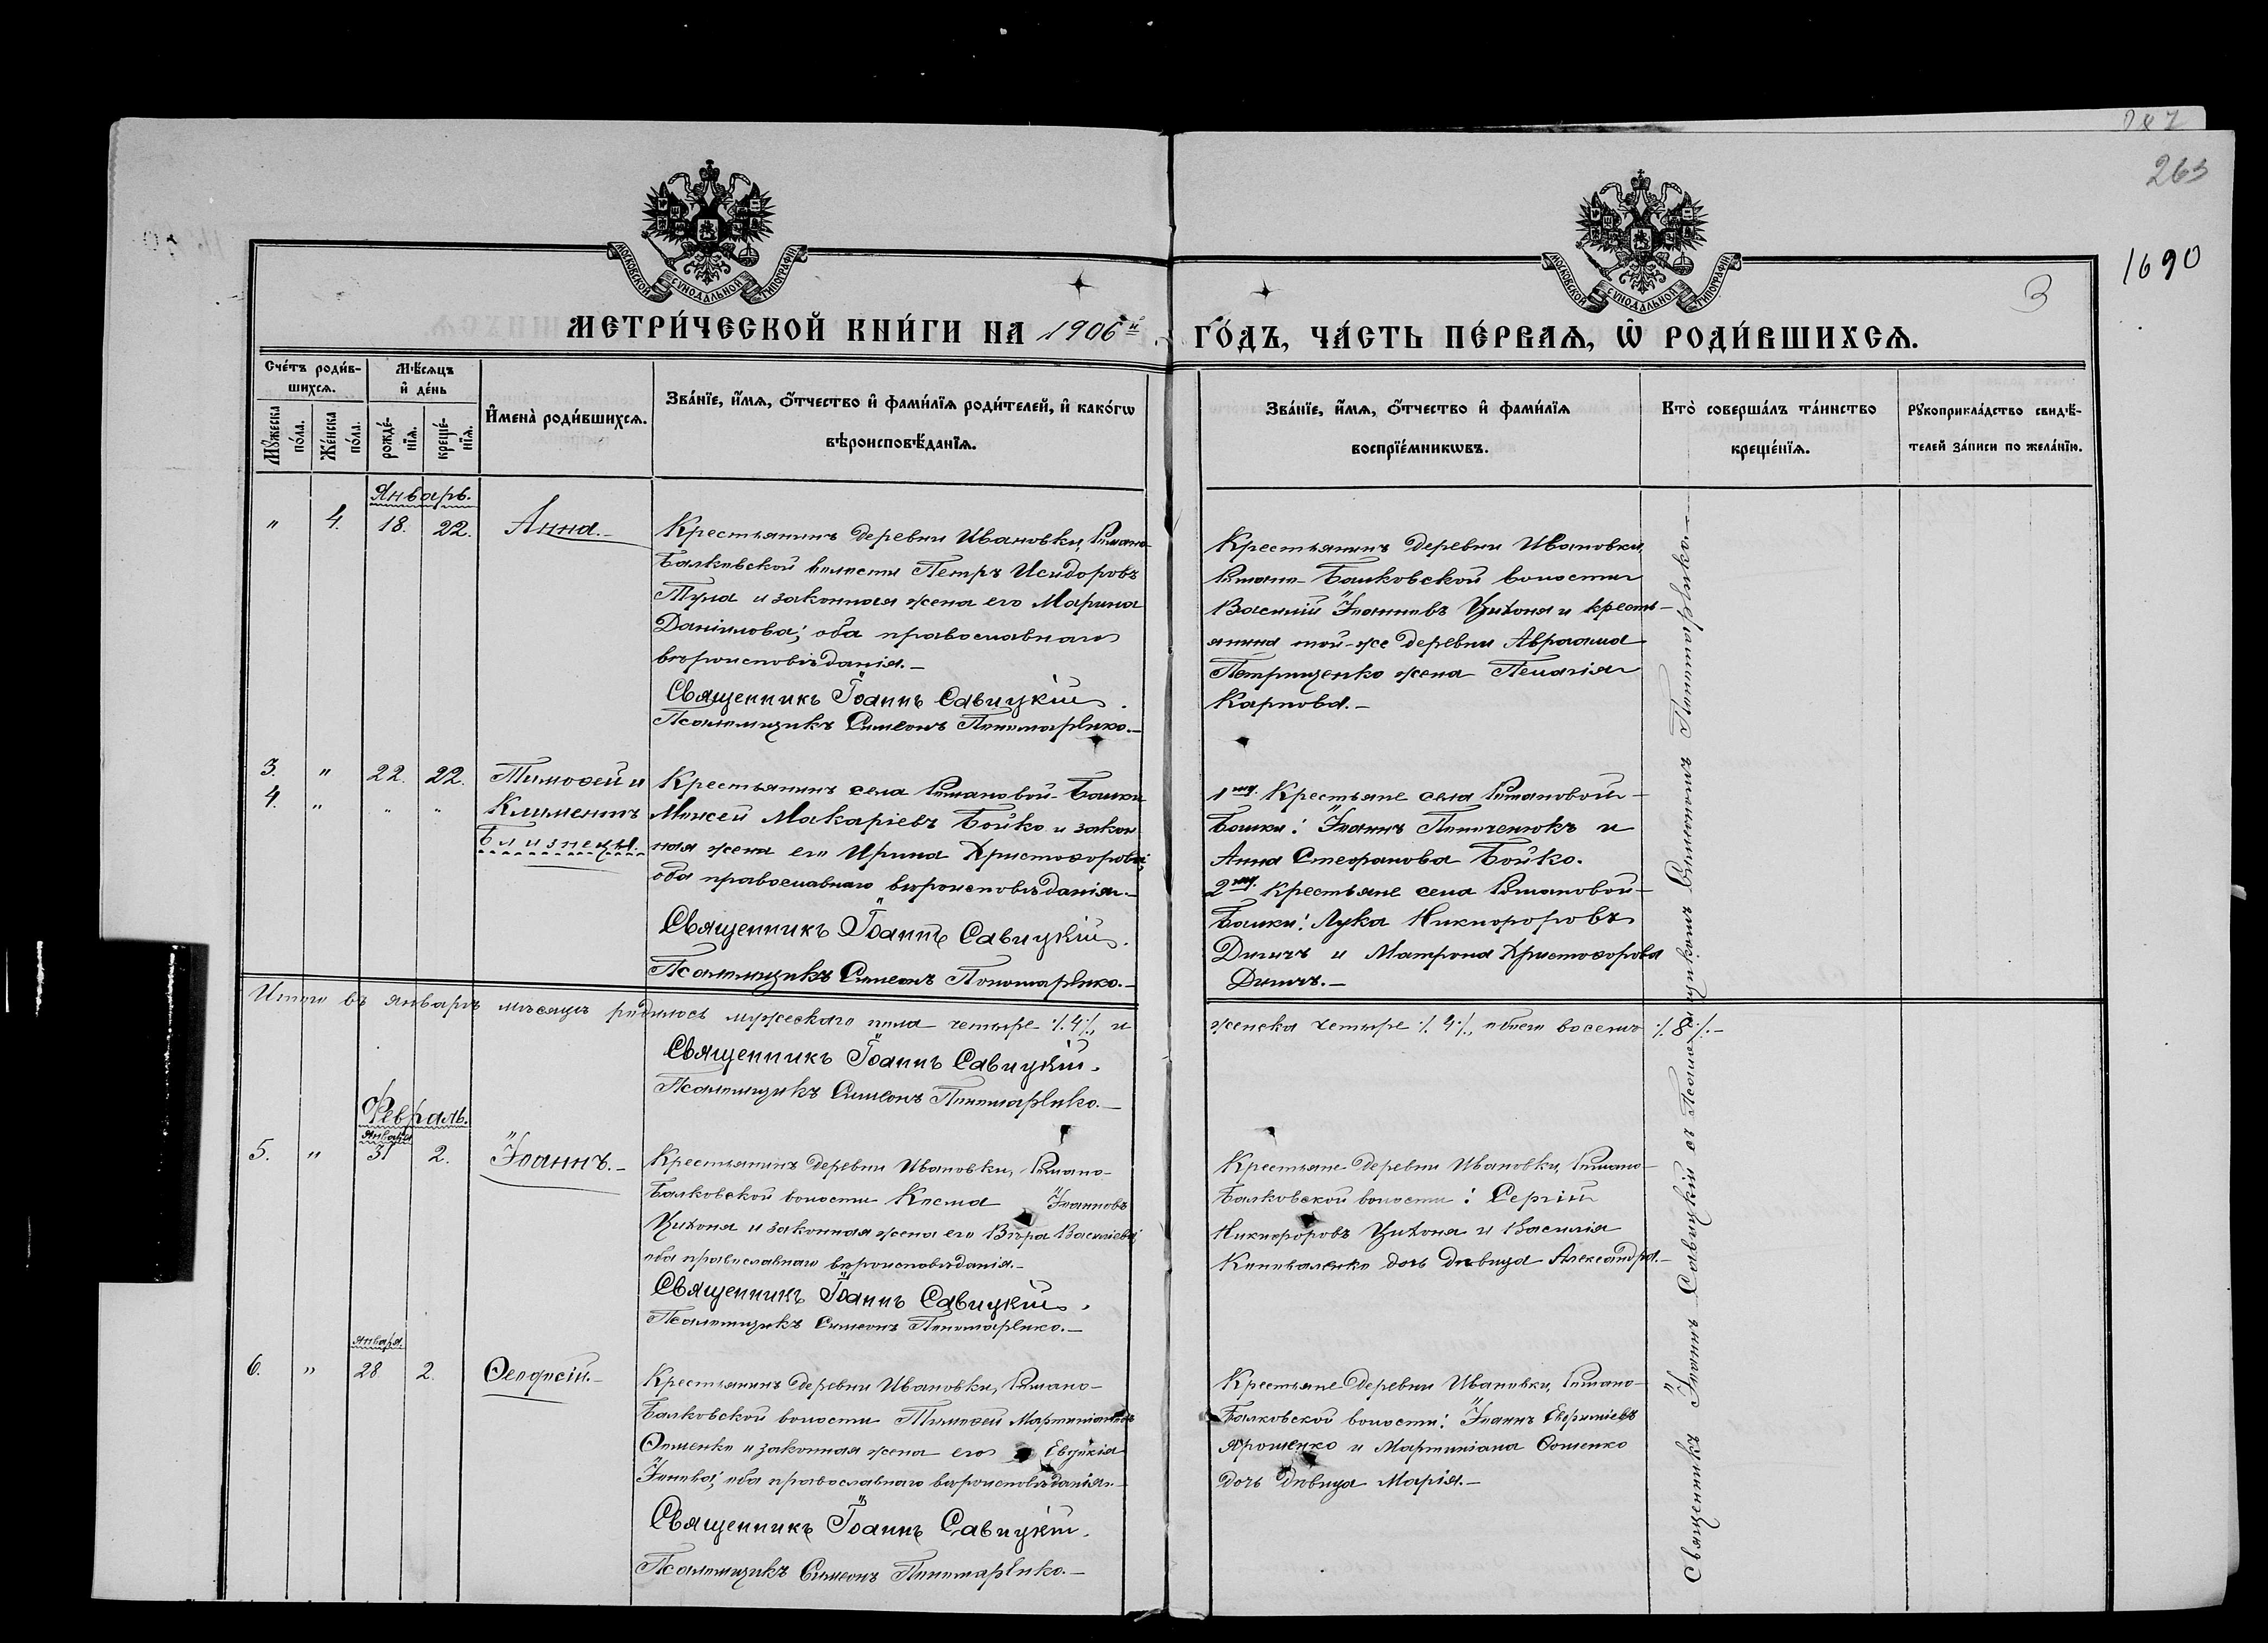 265
1690
3
МОСКОВСКОЙ СѴНОДАЛЬНОЙ ТИПОГРАФІИ
МОСКОВСКОЙ СѴНОДАЛЬНОЙ ТИПОГРАФІИ
МЕТРИ́ЧЕСКОЙ КНИ́ГИ НА 1906й ГО́ДЪ, ЧА́СТЬ ПЕ́РВАѦ, Ѽ РОДИ́ВШИХСѦ.
Сче́тъ роди́в-
шихсѧ.
Мꙋ́жеска по́ла.
Же́нска по́ла.
Мѣ́сѧцъ
и҆ де́нь
рожде́-
нїѧ.
креще́-
нїѧ.
И҆мена̀ роди́вшихсѧ.
Зва́нїе, и҆́мѧ, ѻ҆́тчество и҆ фами́лїѧ роди́телей, и҆ како́гѡ
вѣроисповѣ́данїѧ.
Зва́нїе, и҆́мѧ, ѻ҆́тчество и҆ фами́лїѧ
воспрїе́мникѡвъ.
Кто̀ соверша́лъ та́инство
креще́нїѧ.
Рꙋкоприкла́дство свидѣ́-
телей за́писи по жела́нїю.
Январь.
" 4. 18. 22. Анна.
Крестьянинъ деревни Ивановки, Романо-
Балковской волости Петръ Исидоровъ
Тула и законная жена его Марина
Даніилова; оба православнаго
вѣроисповѣданія.
Священникъ Іоаннъ Савицкій.
Псаломщикъ Симеонъ Пономаренко.
Крестьянинъ деревни Ивановки,
Романо-Балковской волости
Василій Іоанновъ Цихоня и кресть-
янина той-же деревни Авраама
Петрищенко жена Пелагія
Карпова.
3. " 22. 22. Тимоѳей и
4. " " " Климентъ
Близнецы.
Крестьянинъ села Романовой-Балки
Моисей Макаріевъ Бойко и закон
ная жена его Ирина Христофорова;
оба православнаго вѣроисповѣданія.
Священникъ Іоаннъ Савицкій.
Псаломщикъ Симеонъ Пономаренко.
1го Крестьяне села Романовой-
Балки: Іоаннъ и
Анна Стефанова Бойко.
2го Крестьяне села Романовой-
Балки: Лука Никифоровъ
и Матрона Христофорова
Итого въ январѣ мѣсяцѣ родилось мужескаго пола четыре ٪4٪, и женска четыре ٪4٪, обоего восемь ٪8٪.
Священникъ Іоаннъ Савицкій.
Псаломщикъ Симеонъ Пономаренко.
Февраль.
Января
5. " 31 2. Іоаннъ.
Крестьянинъ деревни Ивановки, Романо-
Балковской волости Косма Іоанновъ
Цихоня и законная жена его Вѣра Василіева;
оба православнаго вѣроисповѣданія.
Священникъ Іоаннъ Савицкій.
Псаломщикъ Симеонъ Пономаренко.
Крестьяне деревни Ивановки, Романо-
Балковской волости: Сергій
Никифоровъ Цихоня и Василія
Коноваленко дочь дѣвица Александра.
Января
6. " 28. 2. Ѳеодосій.
Крестьянинъ деревни Ивановки, Романо-
Балковской волости Тимоѳей Мартиніановъ
Ѳоменко и законная жена его Евдокія
Іонова; оба православнаго вѣроисповѣданія.
Священникъ Іоаннъ Савицкій.
Псаломщикъ Симеонъ Пономаренко.
Крестьяне деревни Ивановки, Романо-
Балковской волости: Іоаннъ Евфиміевъ
Ярошенко и Мартиніана Ѳоменко
дочь дѣвица Марія.
Священникъ Іоаннъ Савицкій съ Псаломщикомъ Симеономъ Пономаренко